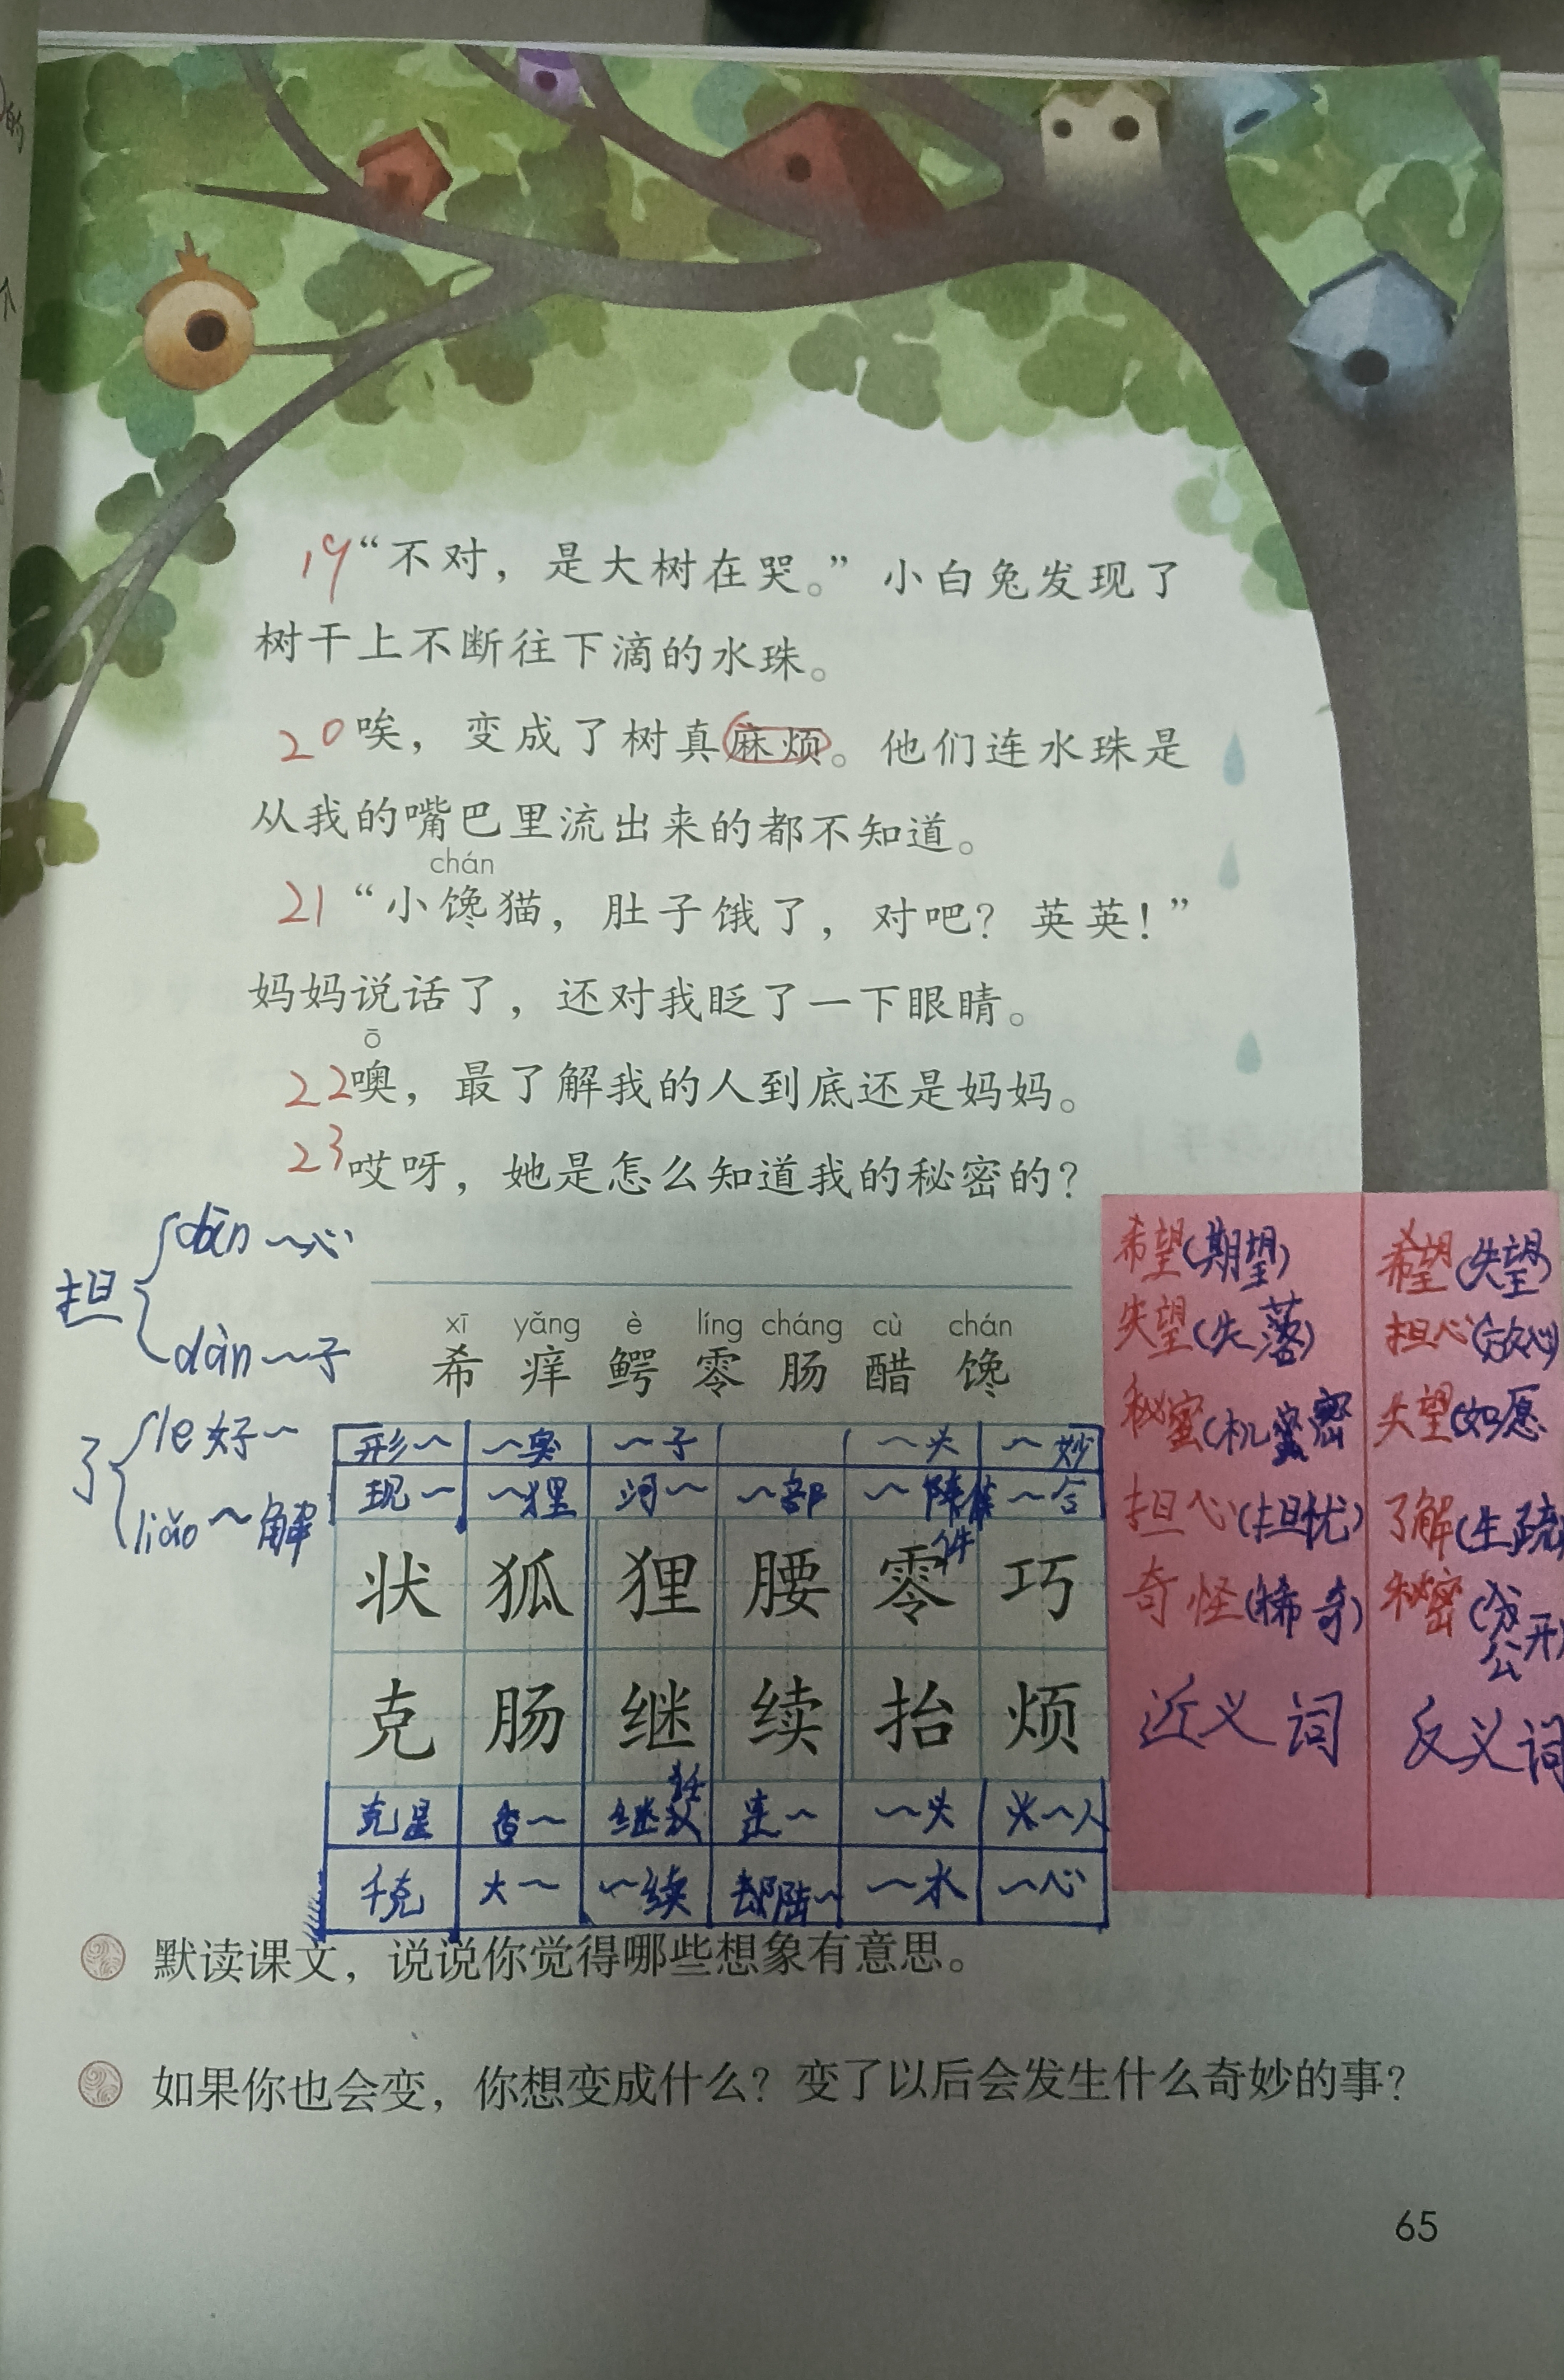 19“不对，是大树在哭。”小白兔发现了
树干上不断往下滴的水珠。
20唉，变成了树真麻烦。他们连水珠是
从我的嘴巴里流出来的都不知道。
chán
21“小馋猫，肚子饿了，对吧？英英！”
妈妈说话了，还对我眨了一下眼睛。
ō
22噢，最了解我的人到底还是妈妈。
23哎呀，她是怎么知道我的秘密的？
担 dān ～心
dàn ～子
了 le 好～
liǎo ～解
xī yǎng è líng cháng cù chán
希 痒 鳄 零 肠 醋 馋
形～ ～臭 ～子 ～头 ～妙
现～ ～狸 河～ ～部 ～件 ～合
状 狐 狸 腰 零 巧
克 肠 继 续 抬 烦
克星 香～ 继 连～ ～头 ～人
千克 大～ ～续 陆～ ～水 ～心
希望(期望)
失望(失落)
秘蜜(机密
担心(担忧)
奇怪(稀奇)
近义词
希望(失望)
担心(放心)
失望(如愿
了解(生疏
秘密(公开)
反义词
默读课文，说说你觉得哪些想象有意思。
如果你也会变，你想变成什么？变了以后会发生什么奇妙的事？
65